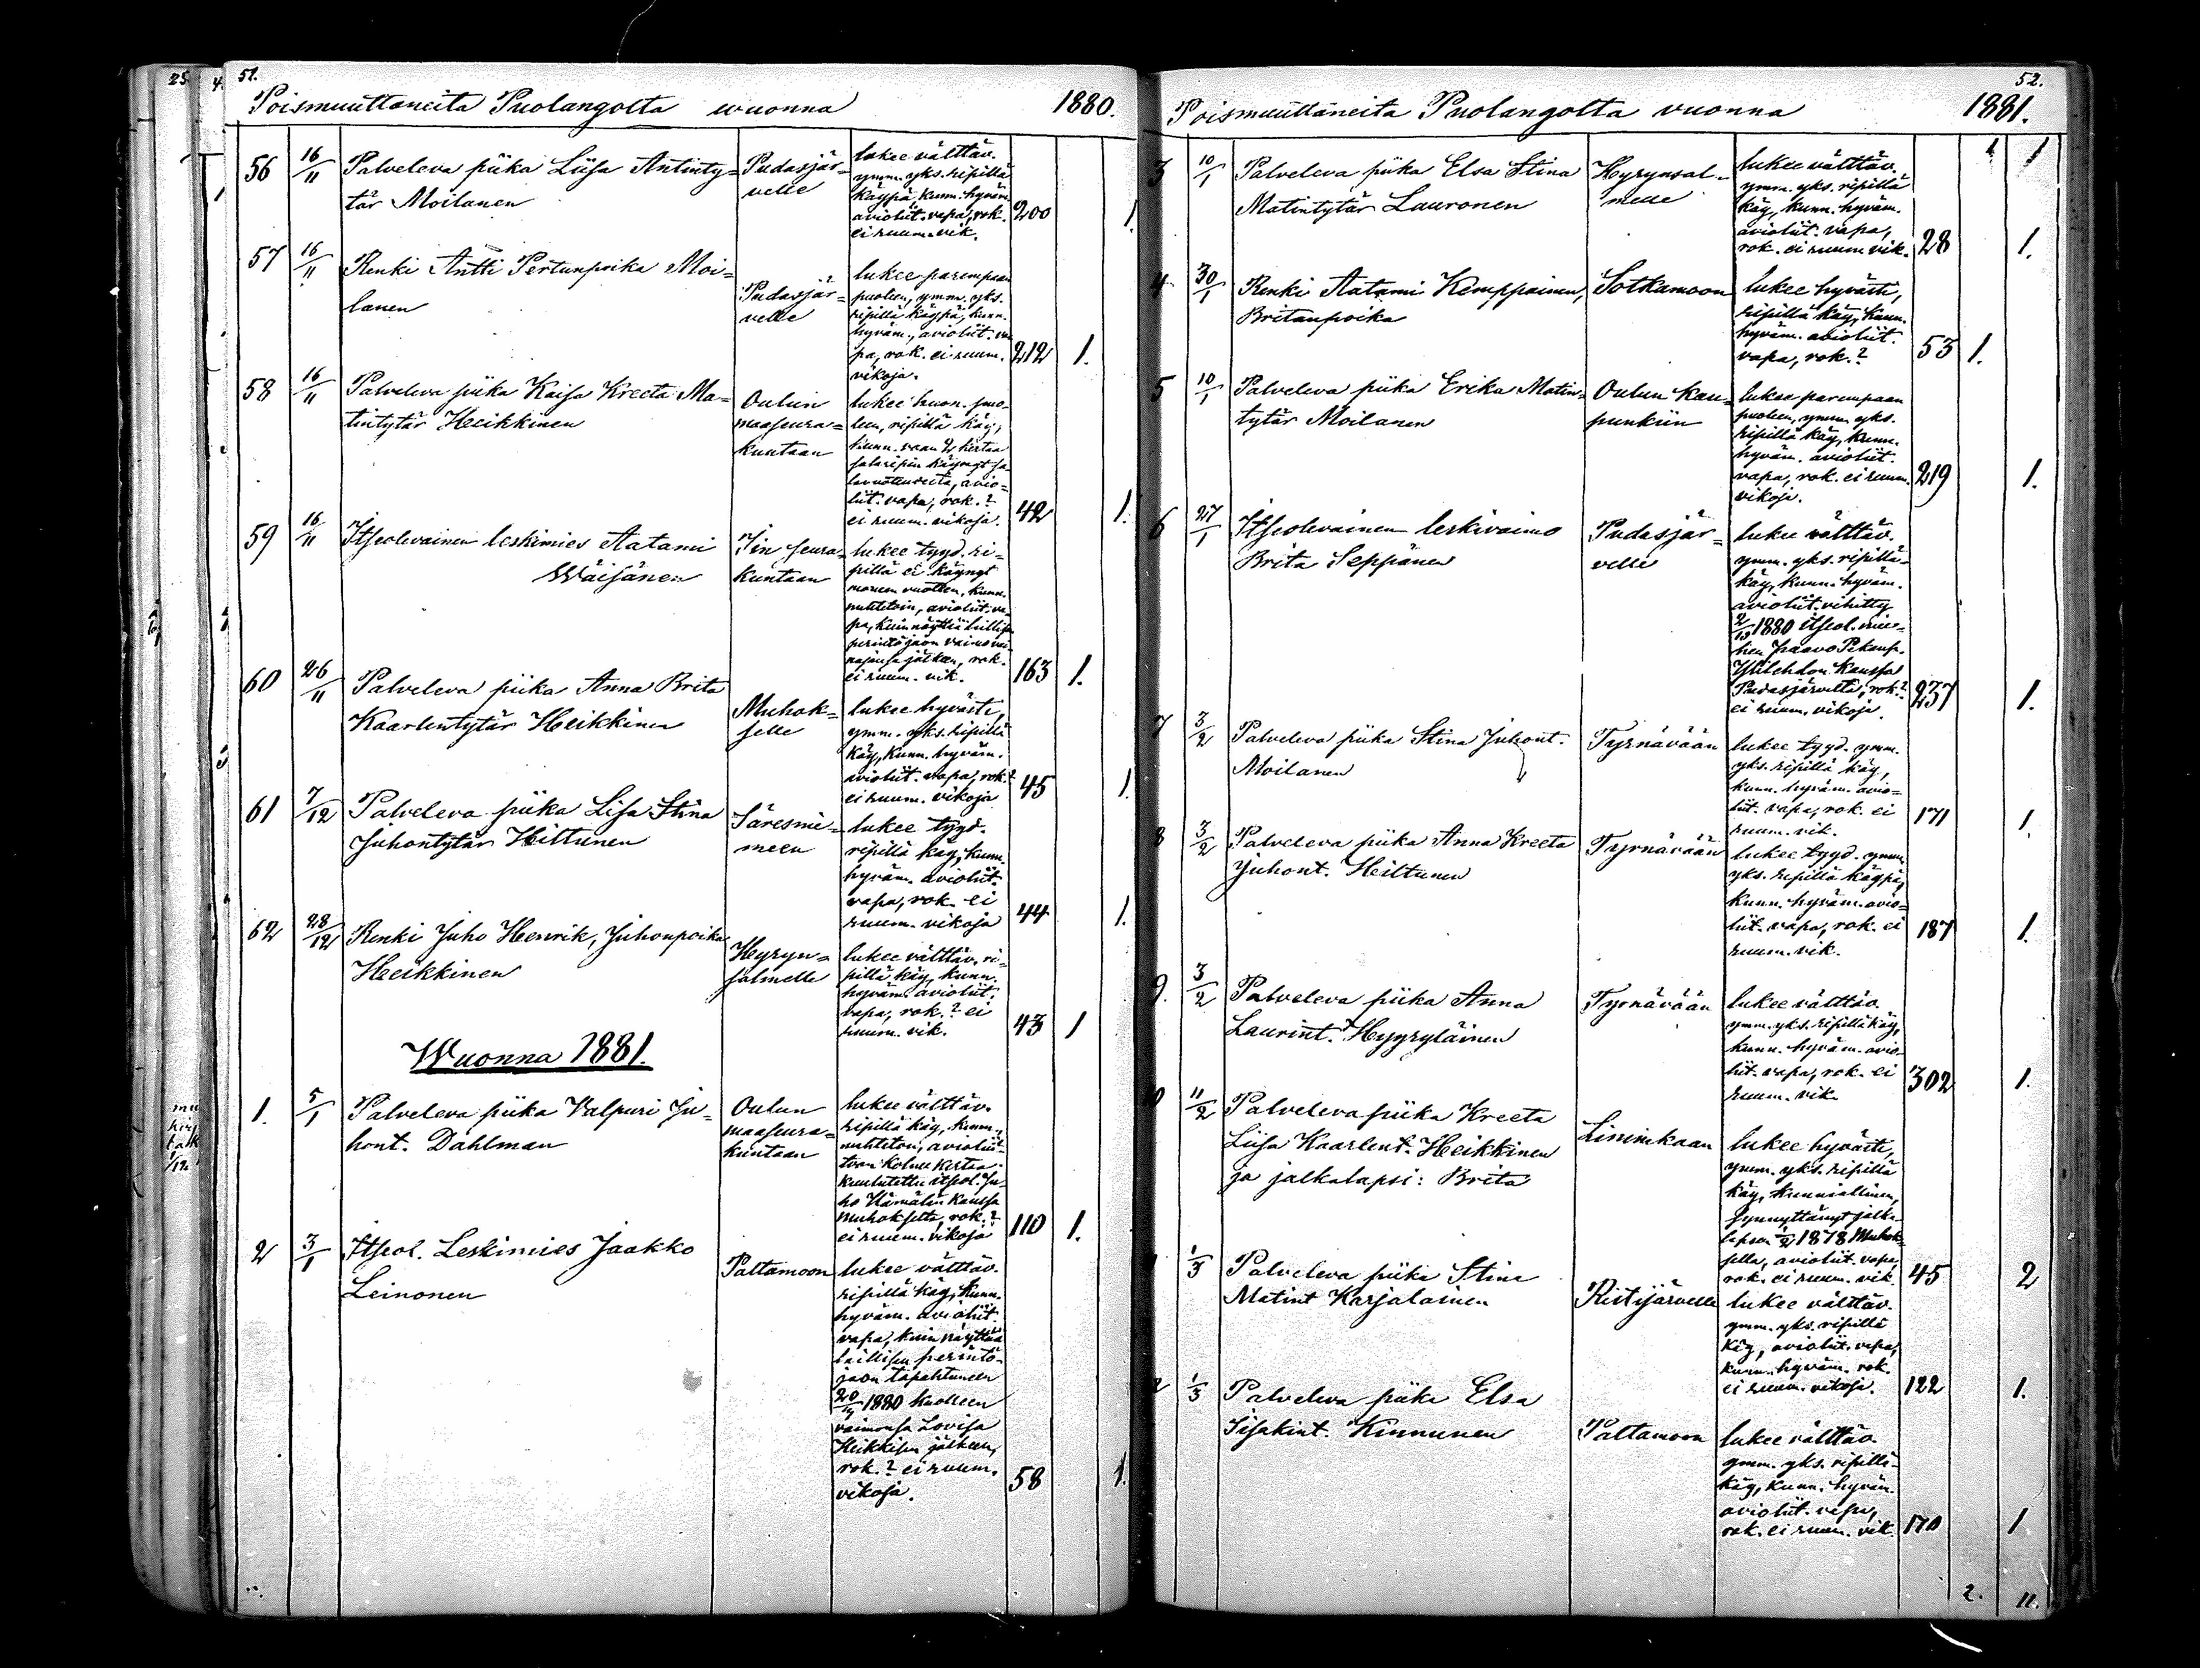 51.
Poismuuttaneita Puolangolta wuonna 1880.
56 16/11 Palveleva piika Liisa Antinty-
tär Moilanen
Pudasjär-
velle
lukee välttäv.
ymm. yks. ripillä
käypä, kunn. hyväm.
avioliit. vapa, rok.
ei ruum. vik.
200 1.
57 16/11 Renki Antti Pertunpoika Moi-
lanen
Pudasjär-
velle
lukee parempaan
puoleen, ymm. yks.
ripillä käypä, kunn.
hyväm., avioliit. va
pa, rok. ei ruum.
vikoja.
212 1.
58 16/11 Palveleva piika Kaisa Kreeta Ma-
tintytär Heikkinen
Oulun
maaseura-
kuntaan
lukee huon. puo-
leen, ripillä käy,
kunn. vaan 2 kertaa
salaripin käynyt ja
avio-
liit. vapa, rok.?
ei ruum. vikoja.
42 1.
59 16/11 Itseolevainen leskimies Aatami
Wäisänen
Iin seura-
kuntaan
lukee tyyd. ri-
pillä ei käynyt
monen vuoteen, kunn.
nuhteeton, avioliit. va-
pa, kuin näyttää laillisen
perintöjaon vaimovai-
najansa jälkeen, rok.
ei ruum. vik.
163 1.
60 26/11 Palveleva piika Anna Brita
Kaarlentytär Heikkinen
Muhok-
selle
lukee hyvästi,
ymm. yks. ripillä
käy, kunn. hyväm.
avioliit. vapa, rok.?
ei ruum. vikoja
45 1.
61 7/12 Palveleva piika Lisa Stina
Juhontytär Hiltunen
Säresnie-
meen
lukee tyyd.
ripillä käy, kunn.
hyväm. avioliit.
vapa, rok. ei
ruum. vikoja
44 1.
62 28/12 Renki Juho Henrik, Juhonpoika
Heikkinen
Hyryn-
salmelle
lukee välttäv. ri-
pillä käy, kunn.
hyväm. avioliit.
vapa, rok.? ei
ruum. vik.
43 1
Wuonna 1881.
1. 5/1 Palveleva piika Valpuri Ju-
hont. Dahlman
Oulun
maaseura-
kuntaan
lukee välttäv.
ripillä käy, kunn.
nuhteeton, avioliit-
toon kolme kertaa
kuulutettu itseol. Ju-
ho Hämälän kanssa
Muhokselta, rok.?
ei ruum. vikoja
110 1.
2 3/1 Itseol. Leskimies Jaakko
Leinonen
Paltamoon
lukee välttäv.
ripillä käy, kunn.
hyväm. avioliit.
vapa, kuin näyttää
laillisen perintö-
jaon tapahtuneen
1880 kuolleen
vaimonsa Lovisa
Heikkisen jälkeen,
rok.? ei ruum.
vikoja.
58 1.
52.
Poismuuttaneita Puolangolta vuonna 1881.
3 10/1 Palveleva piika Elsa Stina
Matintytär Lauronen
Hyrynsal-
melle
lukee välttäv.
ymm. yks. ripillä
käy, kunn. hyväm.
avioliit. vapa,
rok. ei ruum vik.
28 1.
4 30/1 Renki Aatami Kemppainen,
Britanpoika
Sotkamoon
lukee hyvästi,
ripillä käy, kunn.
hyväm. avioliit.
vapa, rok.?
53 1.
5 10/1 Palveleva piika Erika Matin-
tytär Moilanen
Oulun kau-
punkiin
lukee parempaan
puoleen, ymm. yks.
ripillä käy, kunn.
hyväm. avioliit.
vapa, rok. ei ruum.
vikoja.
219 1.
6 27/1 Itseolevainen leskivaimo
Brita Seppänen
Pudasjär-
velle
lukee välttäv.
ymm. yks. ripillä
käy, kunn. hyväm.
avioliit. vihitty
1880 itseol. mie-
hen Paavo Pekanp.
kanssa
Pudasjärveltä, rok.?
ei ruum. vikoja.
237 1.
7 3/2 Palveleva piika Stina Juhont.
Moilanen
Tyrnävään
lukee tyyd. ymm.
yks. ripillä käy,
kunn. hyväm. avio-
liit. vapa, rok. ei
ruum. vik.
171 1.
8 3/2 Palveleva piika Anna Kreeta
Juhont. Heiltunen
Tyrnävään
lukee tyyd. ymm.
yks. ripillä käypä,
kunn. hyväm. avio-
liit. vapa, rok. ei
ruum. vik.
187 1.
9. 3/2 Palveleva piika Anna
Laurint. Hyyryläinen
Tyrnävään
lukee välttäv
ymm. yks. ripillä käy,
kunn. hyväm. avio-
liit. vapa, rok. ei
ruum. vik.
302 1.
0 11/2 Palveleva piika Kreeta
Liisa Kaarlent. Heikkinen
ja jalkalapsi: Brita
Liminkaan
lukee hyvästi,
ymm. yks. ripillä
käy, kunniallinen,
synnyttänyt jalka-
lapsen 1878 Muhok-
sella, avioliit. vapa,
rok. ei ruum. vik.
45 2
1/3 Palveleva piika Stina
Matint Karjalainen
Ristijärvelle
lukee välttäv.
ymm. yks. ripillä
käy, avioliit. vapa,
kunn. hyväm. rok.
ei ruum. vikoja.
122 1.
2 1/3 Palveleva piika Elsa
Iisakint. Kinnunen
Paltamoon
lukee välttäv
ymm. yks. ripillä
käy, kunn. hyväm.
avioliit. vapa,
rok. ei ruum. vik.
170 1
2. 11.